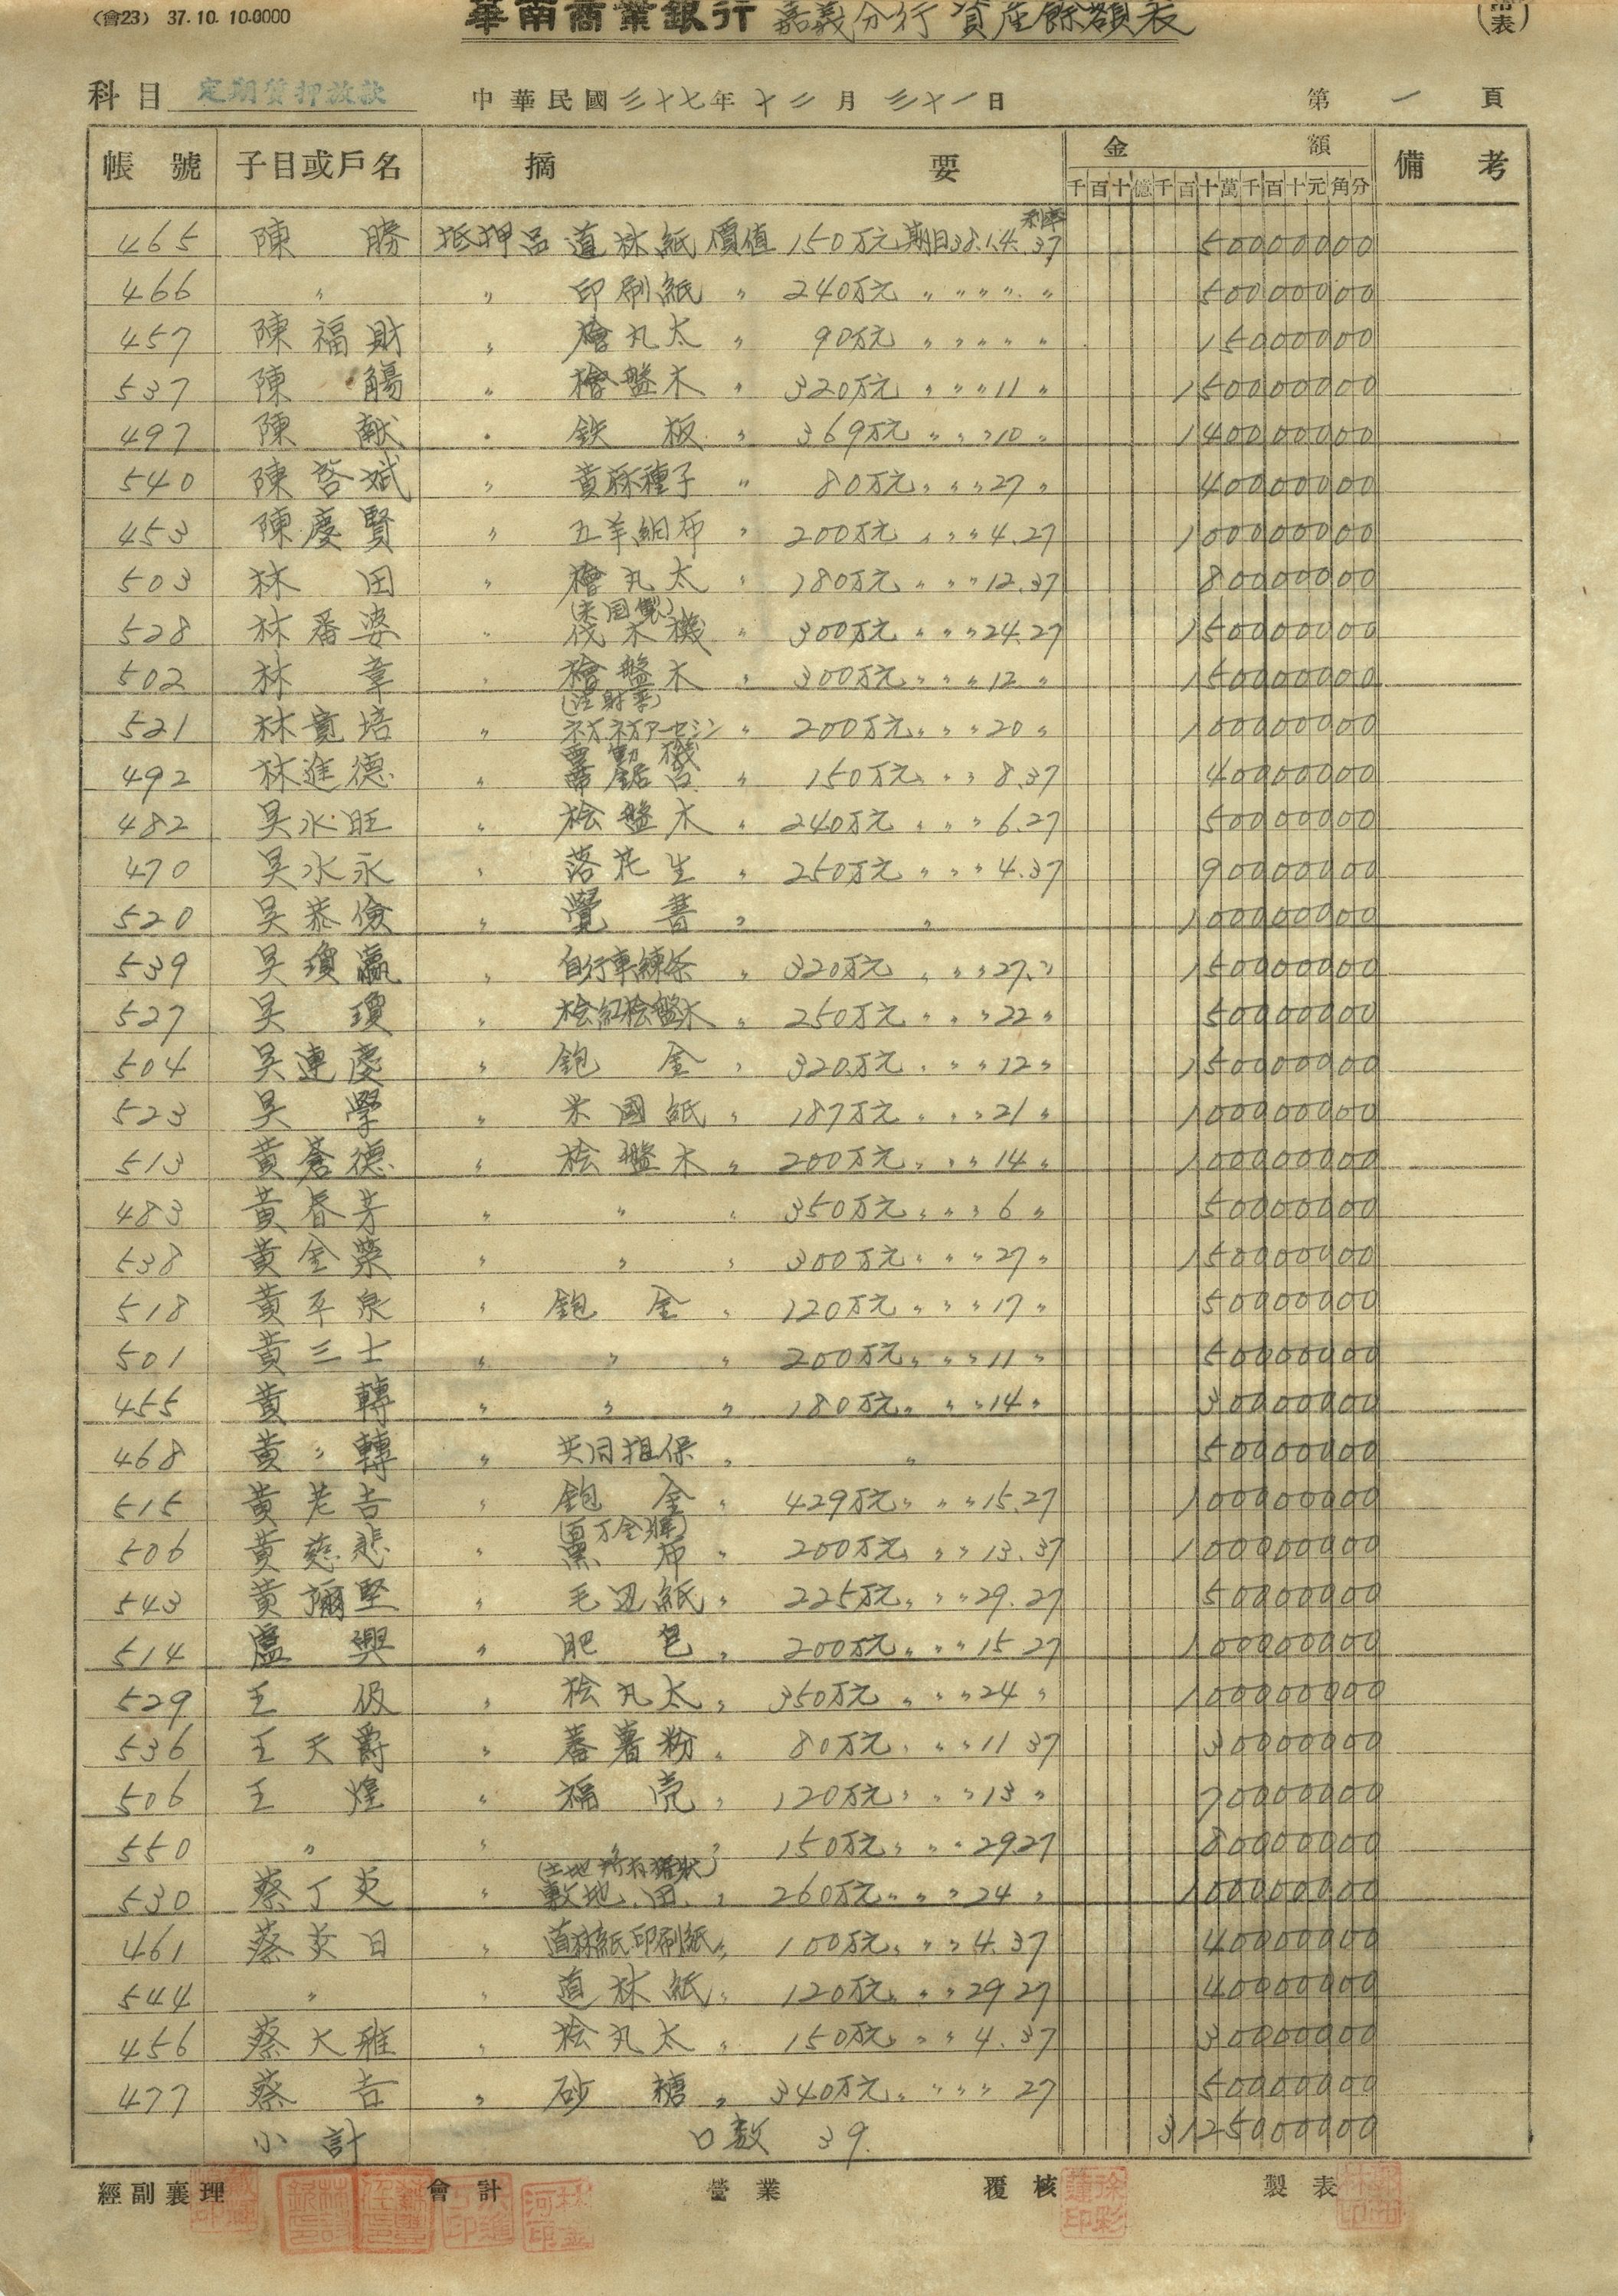 (會23) 37.10.10.0000
華南商業銀行 嘉義分行 資産餘額表
科目 定期質押放款 中華民國三十七年十二月三十一日 第一頁
帳號 子目或戶名 摘要 金額 備考
千百十億千百十萬千百十元角分
利率
465 陳勝 抵押品 道林紙 價值 150万元 期日38.1.4. 37 50000000
466 〃 〃 印刷紙 〃 240万元 〃 〃 〃 〃 〃 50000000
457 陳福財 〃 檜丸太 〃 90万元 〃 〃 〃 〃 〃 15000000
537 陳觴 〃 檜盤木 〃 320万元 〃 〃 〃 11 〃 150000000
497 陳献 〃 鉄板 〃 369万元 〃 〃 〃 10 〃 140000000
540 陳啓斌 〃 黄麻種子 〃 80万元 〃 〃 〃 27 〃 40000000
453 陳慶賢 〃 五羊絹布 〃 200万元 〃 〃 〃 4.27 100000000
503 林田 〃 檜丸太 〃 180万元 〃 〃 〃 12.37 80000000
(米国製)
528 林番婆 〃 伐木機 〃 300万元 〃 〃 〃 24.27 150000000
502 林章 〃 檜盤木 〃 300万元 〃 〃 〃 12 〃 150000000
(注射薬)
521 林寛培 〃 ネオネオアーセミン 〃 200万元 〃 〃 〃 20 〃 100000000
電動機
492 林進德 〃 帯鋸台 〃 150万元 〃 〃 〃 8.37 40000000
482 吴水旺 〃 桧盤木 〃 240万元 〃 〃 〃 6.27 50000000
470 吴水永 〃 落花生 〃 250万元 〃 〃 〃 4.37 90000000
520 吴恭儉 〃 覺書 〃 〃 100000000
539 吴瓊瀛 〃 自行車練条 〃 320万元 〃 〃 〃 27.〃 150000000
527 吴瓊 〃 桧紅桧盤木 〃 250万元 〃 〃 〃 22 〃 50000000
504 吴連慶 〃 鉋金 〃 320万元 〃 〃 〃 12 〃 150000000
523 吴學 〃 米國紙 〃 187万元 〃 〃 〃 21 〃 100000000
513 黄蒼德 〃 桧盤木 〃 200万元 〃 〃 〃 14 〃 100000000
483 黄春芳 〃 〃 〃 350万元 〃 〃 〃 6 〃 50000000
538 黄金榮 〃 〃 〃 300万元 〃 〃 〃 27 〃 150000000
518 黄平泉 〃 鉋金 〃 120万元 〃 〃 〃 17 〃 50000000
501 黄三士 〃 〃 〃 200万元 〃 〃 〃 11 〃 50000000
455 黄轉 〃 〃 〃 180万元 〃 〃 〃 14 〃 30000000
468 黄〃轉 〃 共同担保 〃 〃 50000000
515 黄老吉 〃 鉋金 〃 429万元 〃 〃 〃 15.27 100000000
(百万金牌)
506 黄慈悲 〃 黒布 〃 200万元 〃 〃 〃 13.37 100000000
543 黄彌堅 〃 毛边紙 〃 225万元 〃 〃 〃 29.27 50000000
514 盧興 〃 肥皂 〃 200万元 〃 〃 〃 15 27 100000000
529 王伋 〃 桧丸太 〃 350万元 〃 〃 〃 24 〃 100000000
536 王天爵 〃 蕃薯粉 〃 80万元 〃 〃 〃 11 37 30000000
506 王煌 〃 福壳 〃 120万元 〃 〃 〃 13 〃 70000000
550 〃 〃 〃 〃 150万元 〃 〃 〃 29 27 80000000
(土地所有權狀)
530 蔡丁炎 〃 敷地、田 〃 260万元 〃 〃 〃 24 〃 100000000
461 蔡炎日 〃 道林紙印刷紙 〃 100万元 〃 〃 〃 4.37 40000000
544 〃 〃 道林紙 〃 120万元 〃 〃 〃 29 27 40000000
456 蔡大雅 〃 桧丸太 〃 150万元 〃 〃 〃 4.37 30000000
477 蔡吉 〃 砂糖 〃 340万元 〃 〃 〃 〃 27 50000000
小計 口数 39. 3125000000
經副襄理 會計 營業 覆核 製表